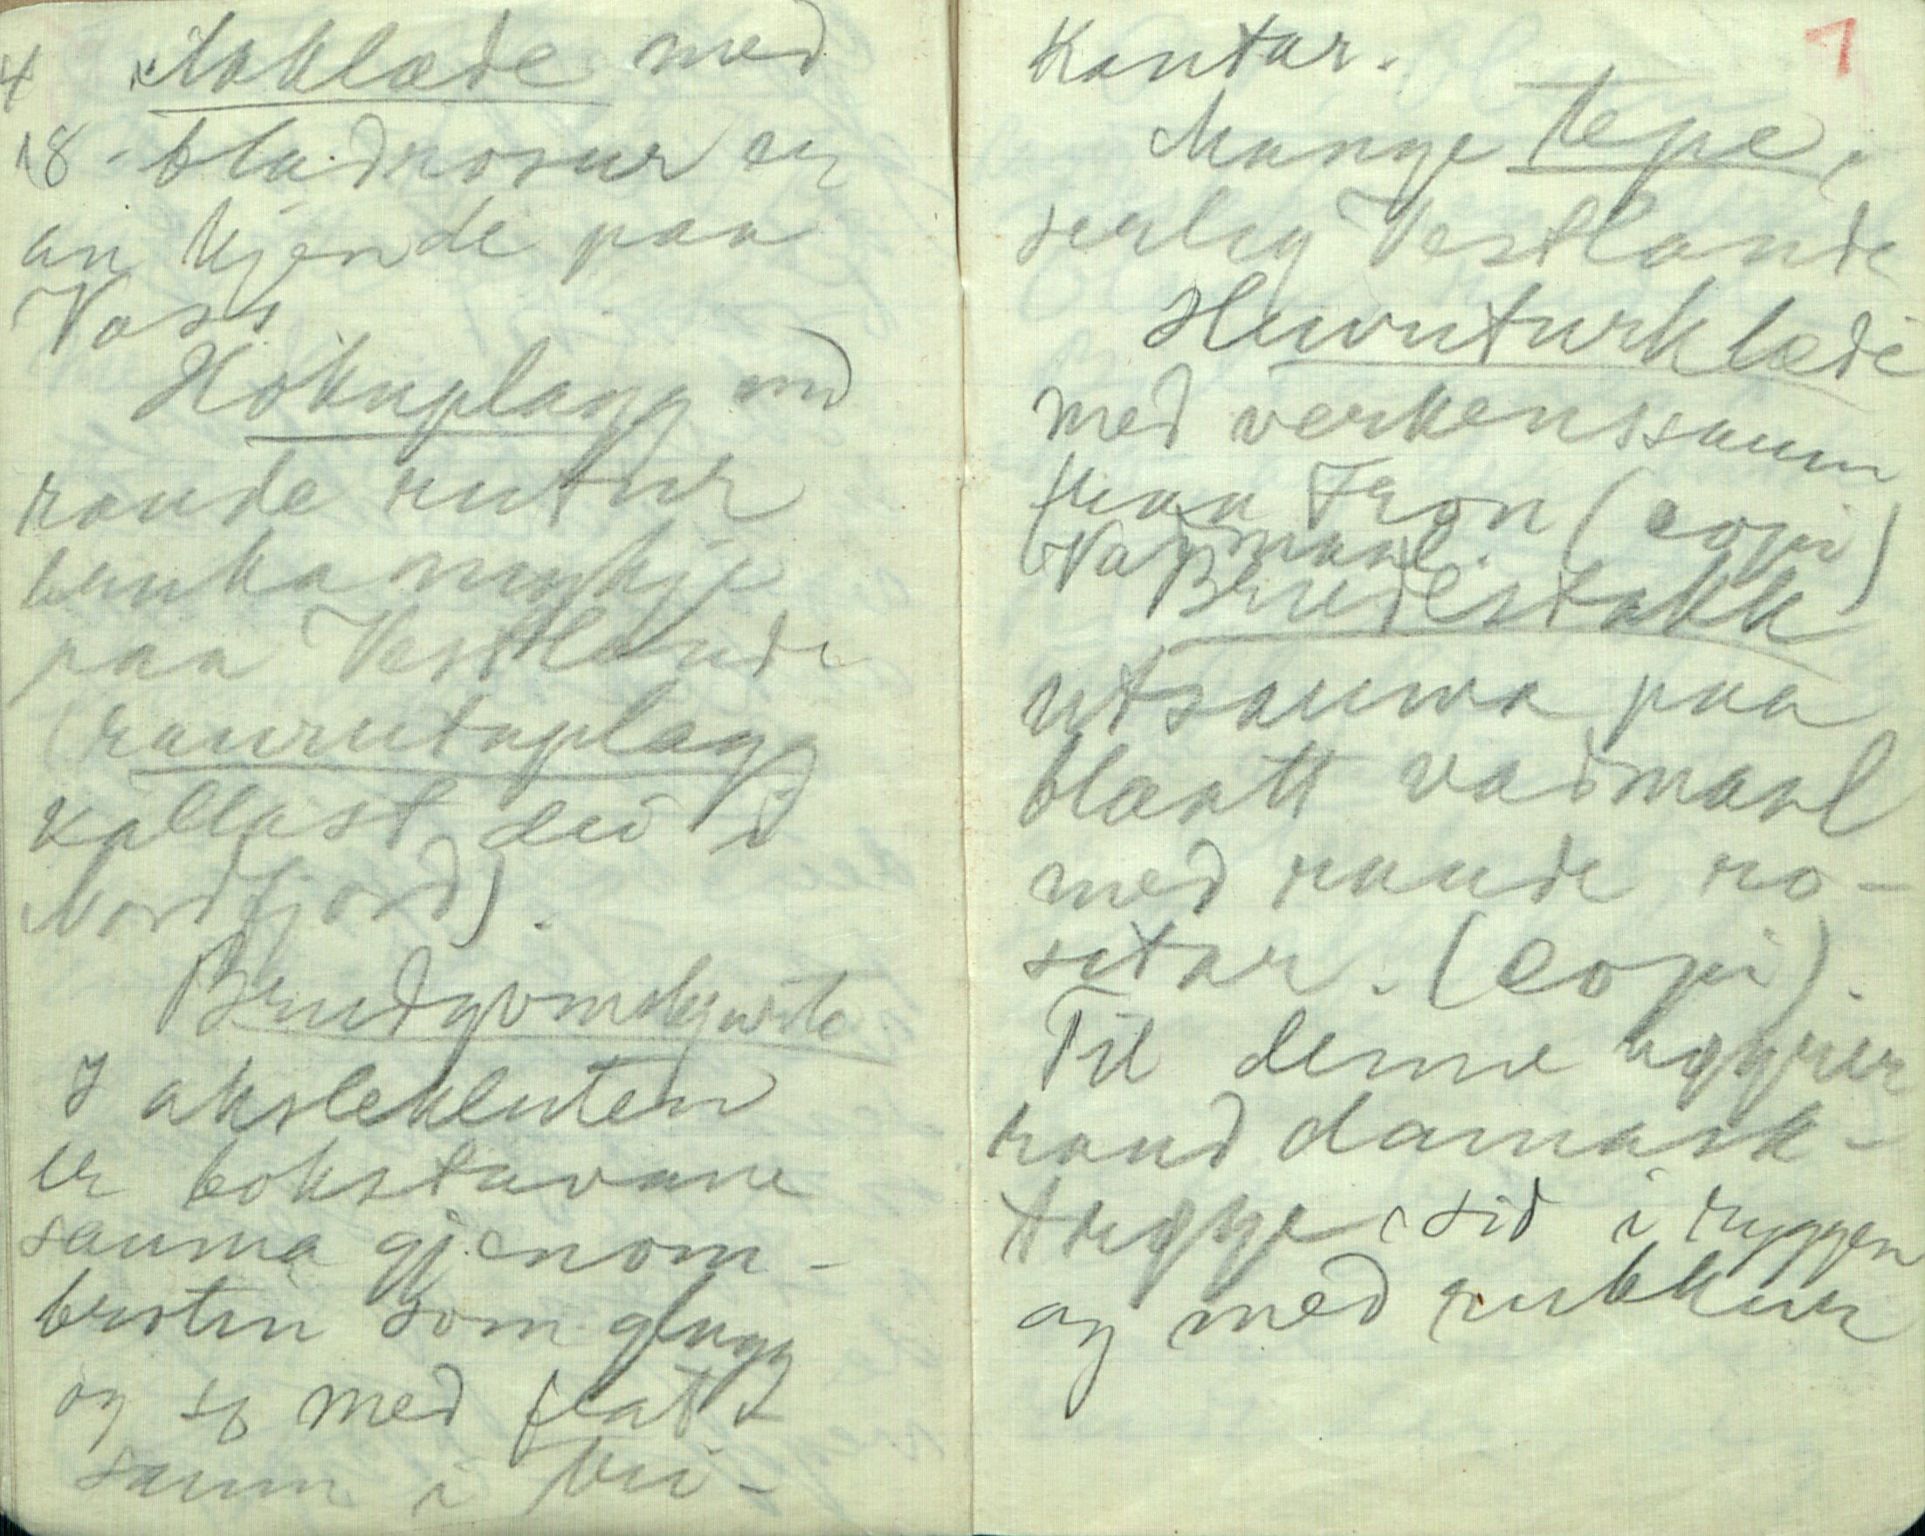 4 Aaklæde med
18-bladrosur er
an kjende paa
Voss
Hokuplagg med
raude rutur
bruka mykje
paa Vestlande
(raurutuplagg
kallast dei i
Nordfjord).
Brudgomskjurte
I akslekluten
er bokstavane
sauma gjenom-
broten som glugg
og so med flatt
saum i kvi-
1
Kantar.
Mange tepe,
serleg Vestlande
Huvuturklæde
med verkenssaum
fraa Fron (copi)
(Vadmaal.
Brudestakk
utsauma paa
blaatt vadmaal
med raude ro-
setar. (copi).
Til denne høyrer
raud damask-
trøye, sid i ryggen
og med rukkur